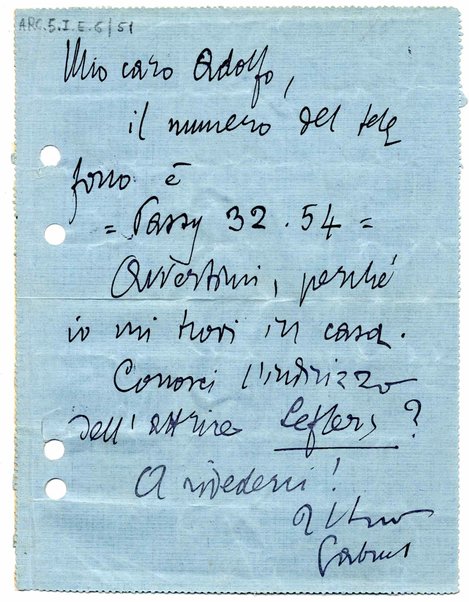 ARC.5.I.E.6/51
Mio caro Adolfo,
il numero del tele
fono è
= Passy 32.54 =
Avvertimi, perché
io mi trovi in casa.
Conosci l'indirizzo
dell'attrice Leflers?
A rivederci!
Il tuo
Gabriel